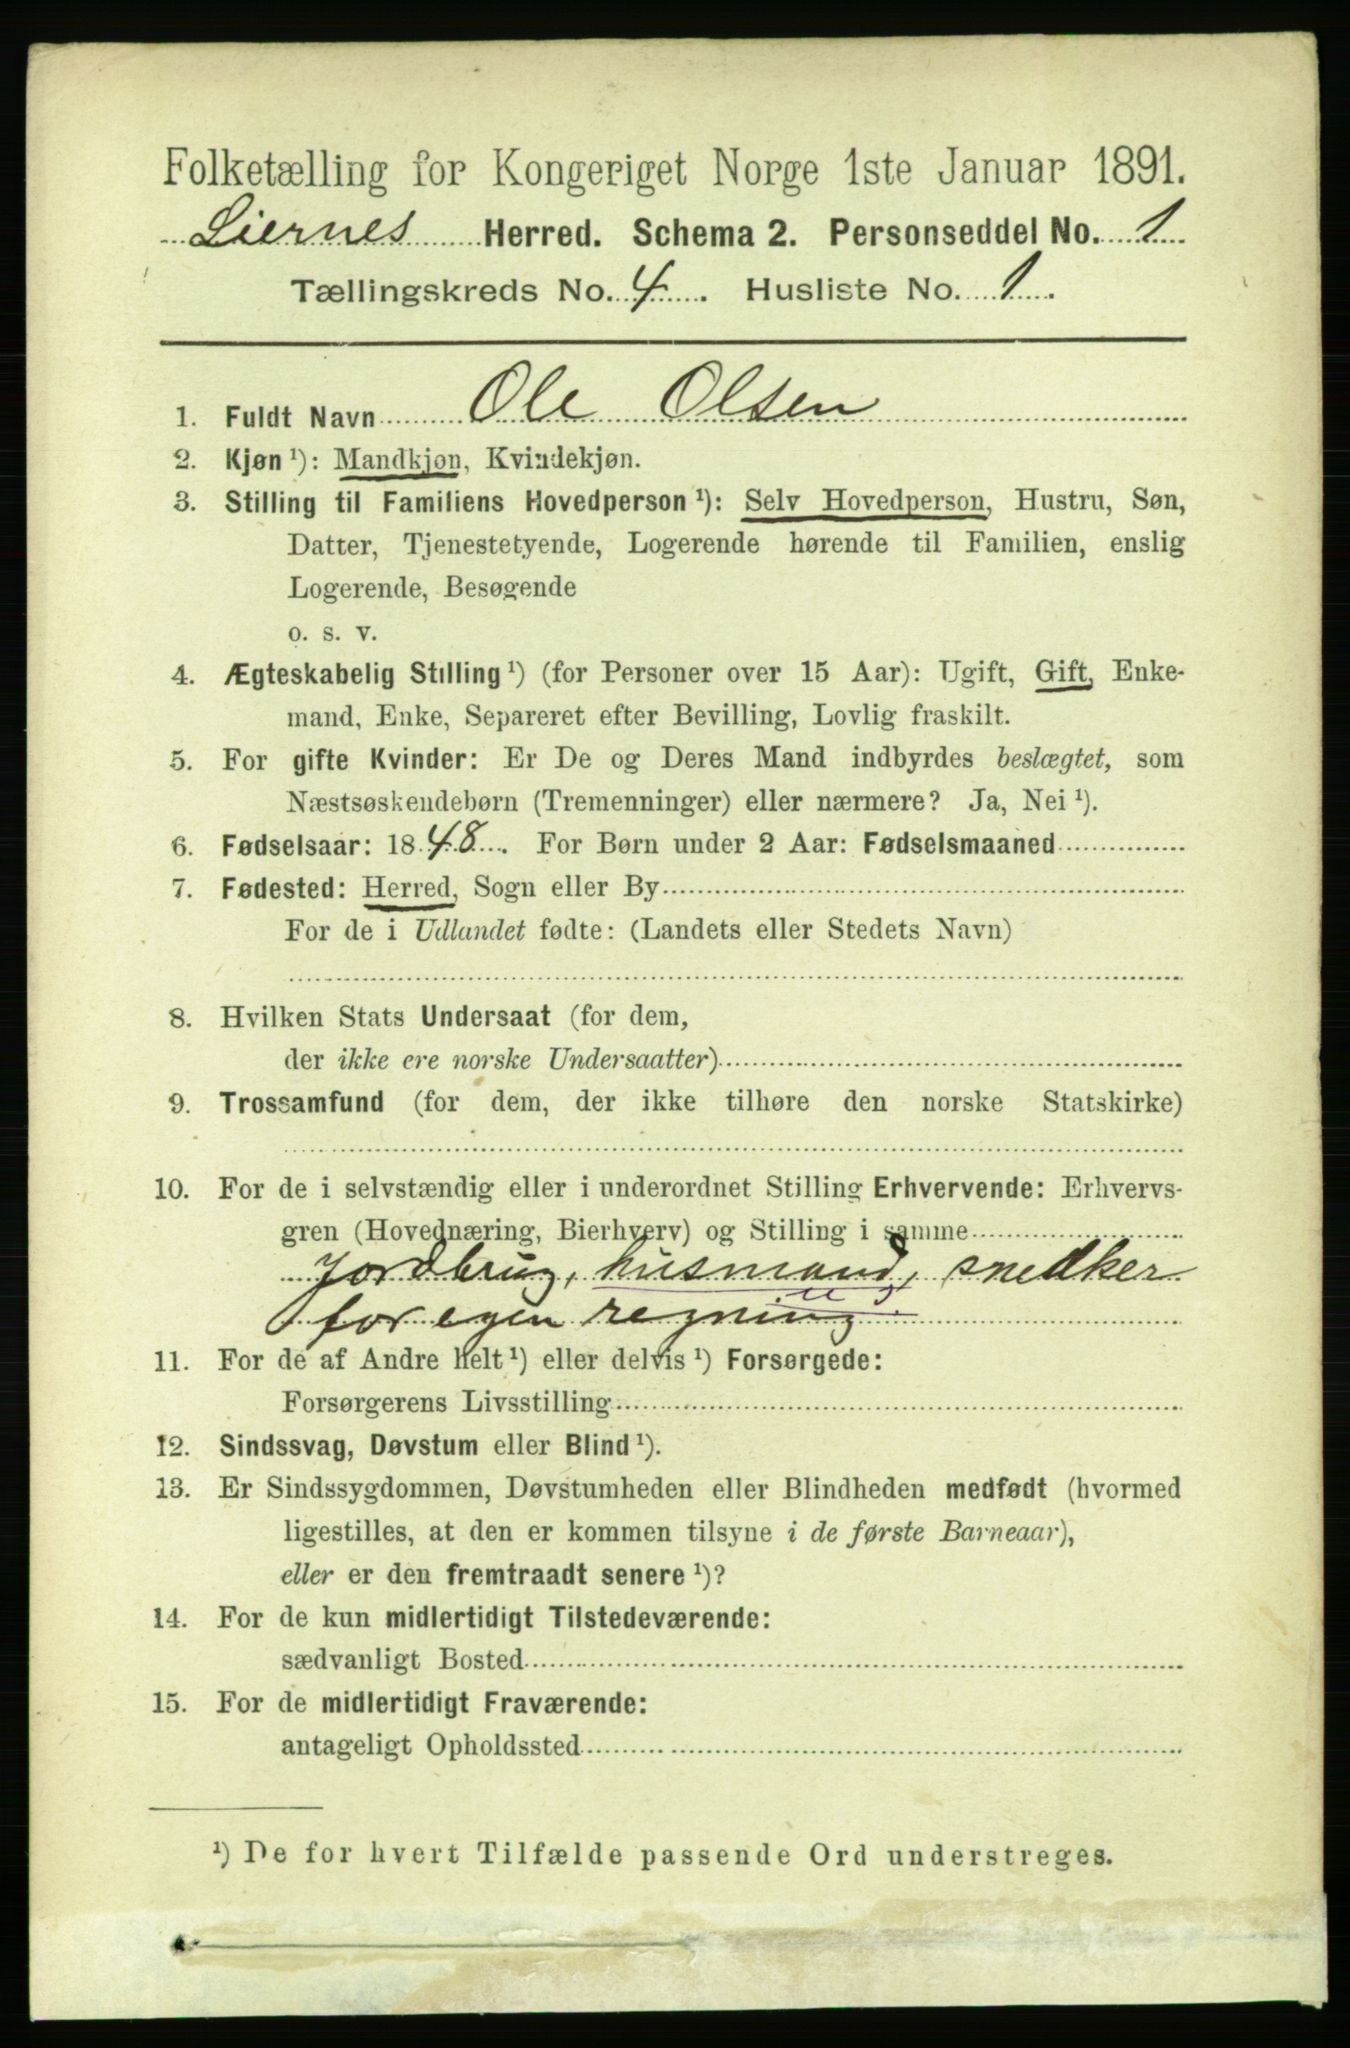 Folketælling for Kongeriget Norge 1ste Januar 1891.
Liernes Herred. Schema 2. Personseddel No. 1
Tællingskreds No. 4. Husliste No. 1.
1. Fuldt Navn Ole Olsen
2. Kjøn ¹): Mandkjøn, Kvindekjøn.
3. Stilling til Familiens Hovedperson ¹): Selv Hovedperson, Hustru, Søn,
Datter, Tjenestetyende, Logerende hørende til Familien, enslig
Logerende, Besøgende
o. s. v.
4. Ægteskabelig Stilling ¹) (for Personer over 15 Aar): Ugift, Gift, Enke-
mand, Enke, Separeret efter Bevilling, Lovlig fraskilt.
5. For gifte Kvinder: Er De og Deres Mand indbyrdes beslægtet, som
Næstsøskendebørn (Tremenninger) eller nærmere? Ja, Nei ¹).
6. Fødselsaar: 1848. For Børn under 2 Aar: Fødselsmaaned
7. Fødested: Herred, Sogn eller By
For de i Udlandet fødte: (Landets eller Stedets Navn)
8. Hvilken Stats Undersaat (for dem,
der ikke ere norske Undersaatter)
9. Trossamfund (for dem, der ikke tilhøre den norske Statskirke)
10. For de i selvstændig eller i underordnet Stilling Erhvervende: Erhvervs-
gren (Hovednæring, Bierhverv) og Stilling i samme
Jordbrug, husmand, snedker
for egen regning
11. For de af Andre helt ¹) eller delvis ¹) Forsørgede:
Forsørgerens Livsstilling
12. Sindssvag, Døvstum eller Blind ¹).
13. Er Sindssygdommen, Døvstumheden eller Blindheden medfødt (hvormed
ligestilles, at den er kommen tilsyne i de første Barneaar),
eller er den fremtraadt senere ¹)?
14. For de kun midlertidigt Tilstedeværende:
sædvanligt Bosted
15. For de midlertidigt Fraværende:
antageligt Opholdssted
¹) De for hvert Tilfælde passende Ord understreges.